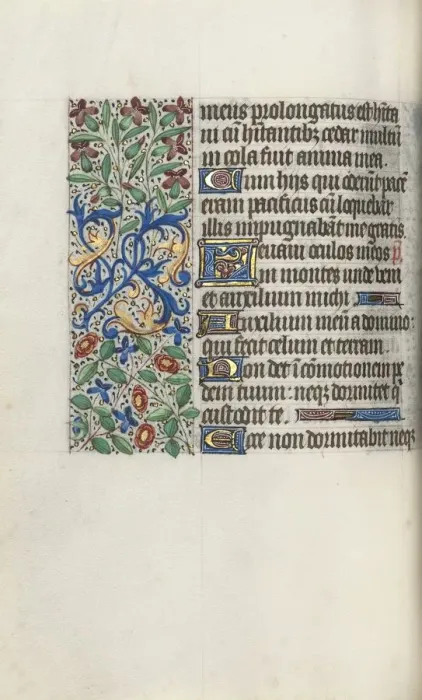 meus prolongatus est hīta
ui cū hītantibȝ cedar multū
in cola fuit anima mea.
Cum hijs qui oderūt pacē
eram pacificus cū loquebar
illis impugnabāt me gratis.
Leuaui oculos meos p̄.
in montes unde ven
et auxilium michi
Auxilium meū a domino:
qui fecit celum et terram.
Non det ī cōmotionem pe
dem tuum: neqȝ dormitet q̄
custodit te.
Ecce non dormitabit neqȝ